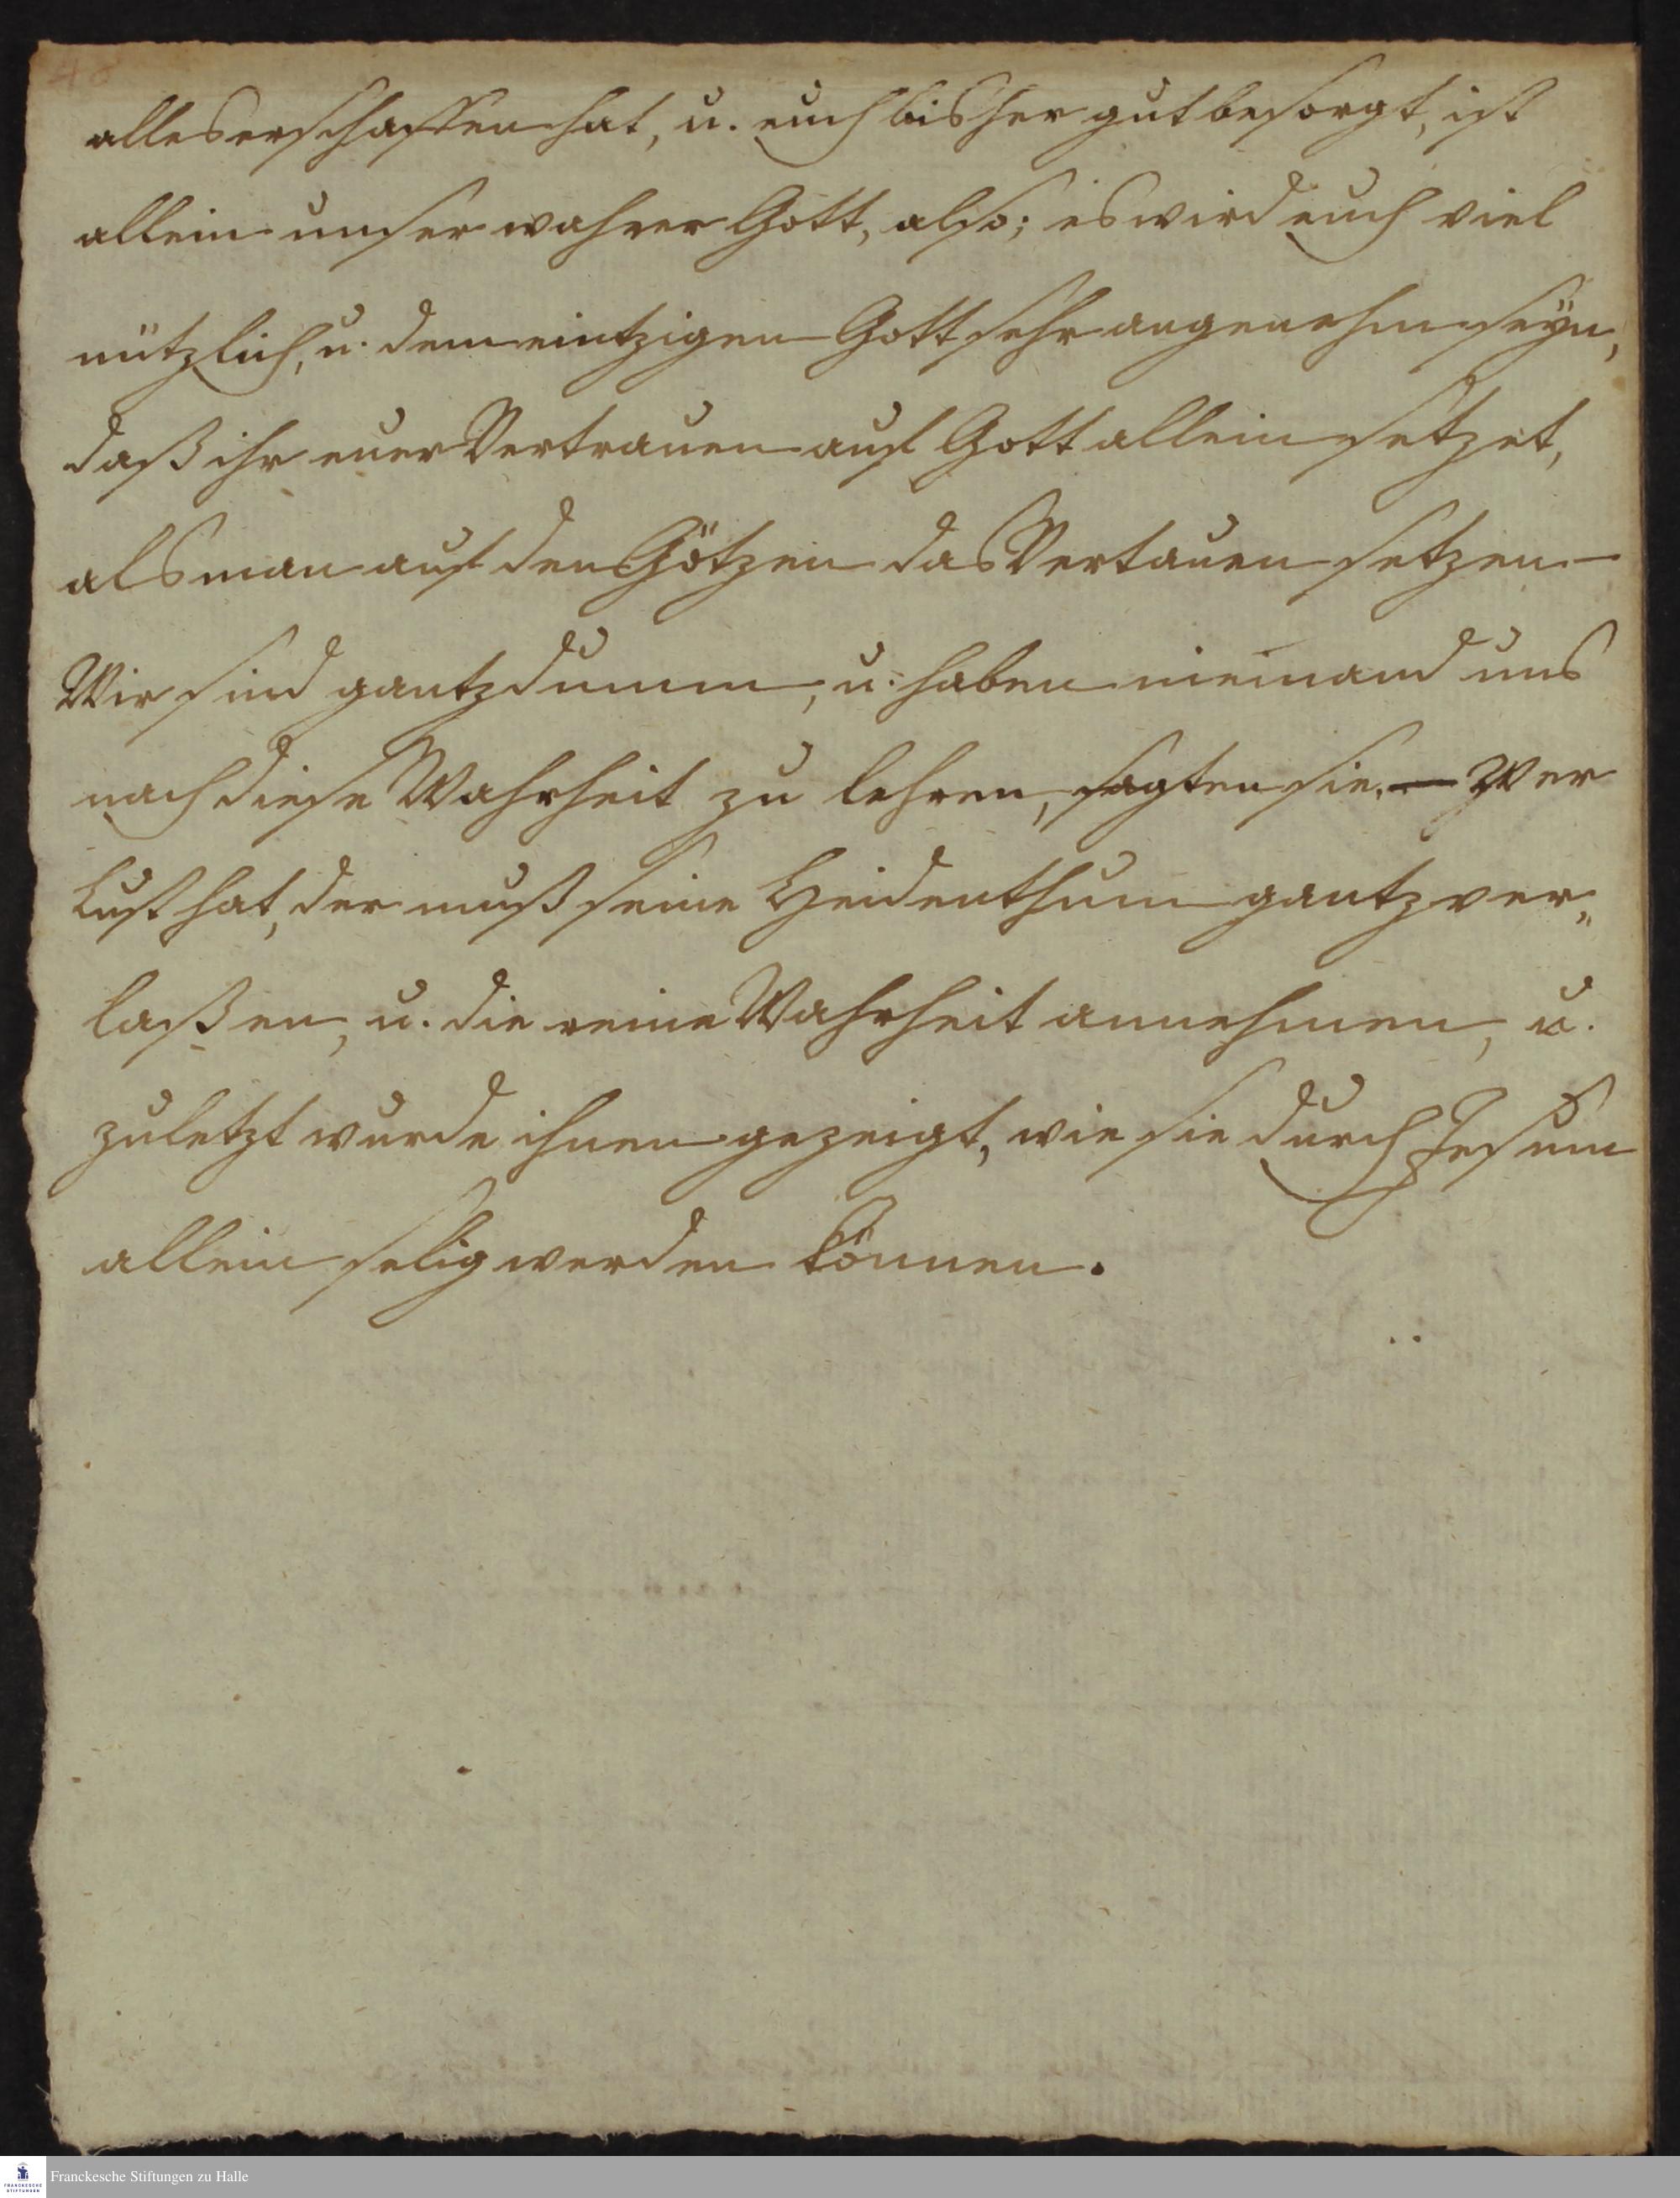 48
alles erschaffen hat, u. euch bisher gut besorgt, ist
allein unser wahrer Gott, also; es wird euch viel
nützlich, u. dem eintzigen Gott sehr angenehm seÿn,
daß ihr euer Vertrauen auf Gott allein setzet,
als man auf den Götzen das Vertauen setzen
Wir sind gantz dumm, u. haben niemand uns
nach diese Wahrheit zu lehren, sagten sie. — Wer
Lust hat, der muß seine Heidenthum gantz ver„
laßen, u. die reine Wahrheit annehmen, u.
zuletzt wurde ihnen gezeigt, wie sie durch Jesum
allein selig werden können.
Franckesche Stiftungen zu Halle
FRANCKESCHE
STIFTUNGEN